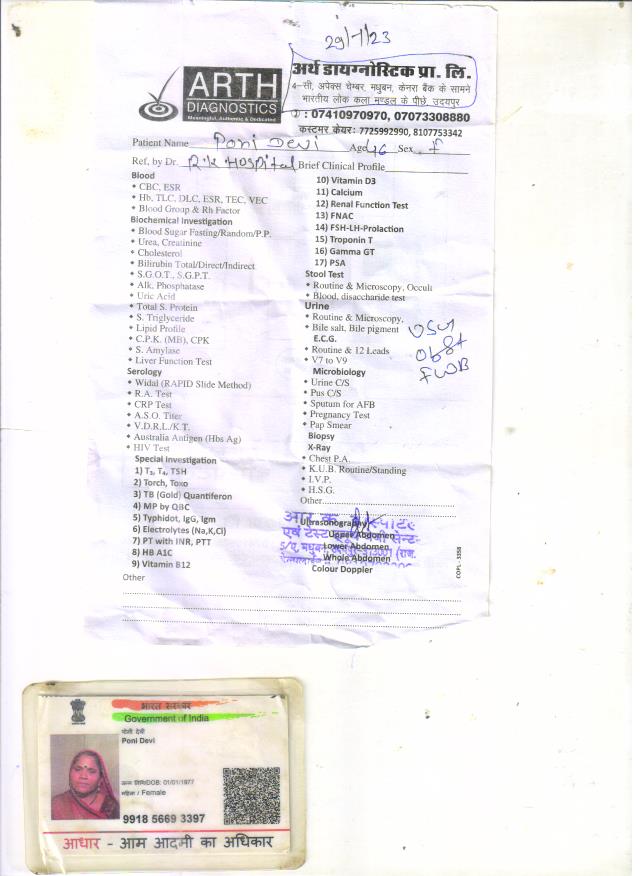 29/1/23
ARTH
DIAGNOSTICS
Meaningful, Authentic & Dedicated
अर्थ डायग्नोस्टिक प्रा. लि.
4-सी, अपेक्स चेम्बर, मधुबन, केनरा बैंक के सामने
भारतीय लोक कला मण्डल के पीछे, उदयपुर
: 07410970970, 07073308880
कस्टमर केयर: 7725992990, 8107753342
Patient Name Poni Devi Age 46 Sex F
Ref, by Dr. R.K Hospital Brief Clinical Profile
Blood
* CBC, ESR
* Hb, TLC, DLC, ESR, TEC, VEC
* Blood Group & Rh Factor
Biochemical Investigation
* Blood Sugar Fasting/Random/P.P.
* Urea, Creatinine
* Cholesterol
* Bilirubin Total/Direct/Indirect
* S.G.O.T., S.G.P.T.
* Alk, Phosphatase
* Uric Acid
* Total S. Protein
* S. Triglyceride
* Lipid Profile
* C.P.K. (MB), CPK
* S. Amylase
* Liver Function Test
Serology
* Widal (RAPID Slide Method)
* R.A. Test
* CRP Test
* A.S.O. Titer
* V.D.R.L./K.T.
* Australia Antigen (Hbs Ag)
* HIV Test
Special Investigation
1) T3, T4, TSH
2) Torch, Toxo
3) TB (Gold) Quantiferon
4) MP by QBC
5) Typhidot, IgG, Igm
6) Electrolytes (Na,K,Cl)
7) PT with INR, PTT
8) HB A1C
9) Vitamin B12
Other
10) Vitamin D3
11) Calcium
12) Renal Function Test
13) FNAC
14) FSH-LH-Prolaction
15) Troponin T
16) Gamma GT
17) PSA
Stool Test
* Routine & Microscopy, Occult
* Blood, disaccharide test
Urine
* Routine & Microscopy,
* Bile salt, Bile pigment
E.C.G.
* Routine & 12 Leads
* V7 to V9
Microbiology
* Urine C/S
* Pus C/S
* Sputum for AFB
* Pregnancy Test
* Pap Smear
Biopsy
X-Ray
* Chest P.A.
* K.U.B. Routine/Standing
* I.V.P.
* H.S.G.
Other
Ultrasonography
Upper Abdomen
Lower Abdomen
Whole Abdomen
Colour Doppler
USG
Obst
FWB
COPL - 3358
भारत सरकार
Government of India
पोनी देवी
Poni Devi
जन्म तिथि/DOB: 01/01/1977
महिला / Female
9918 5669 3397
आधार - आम आदमी का अधिकार